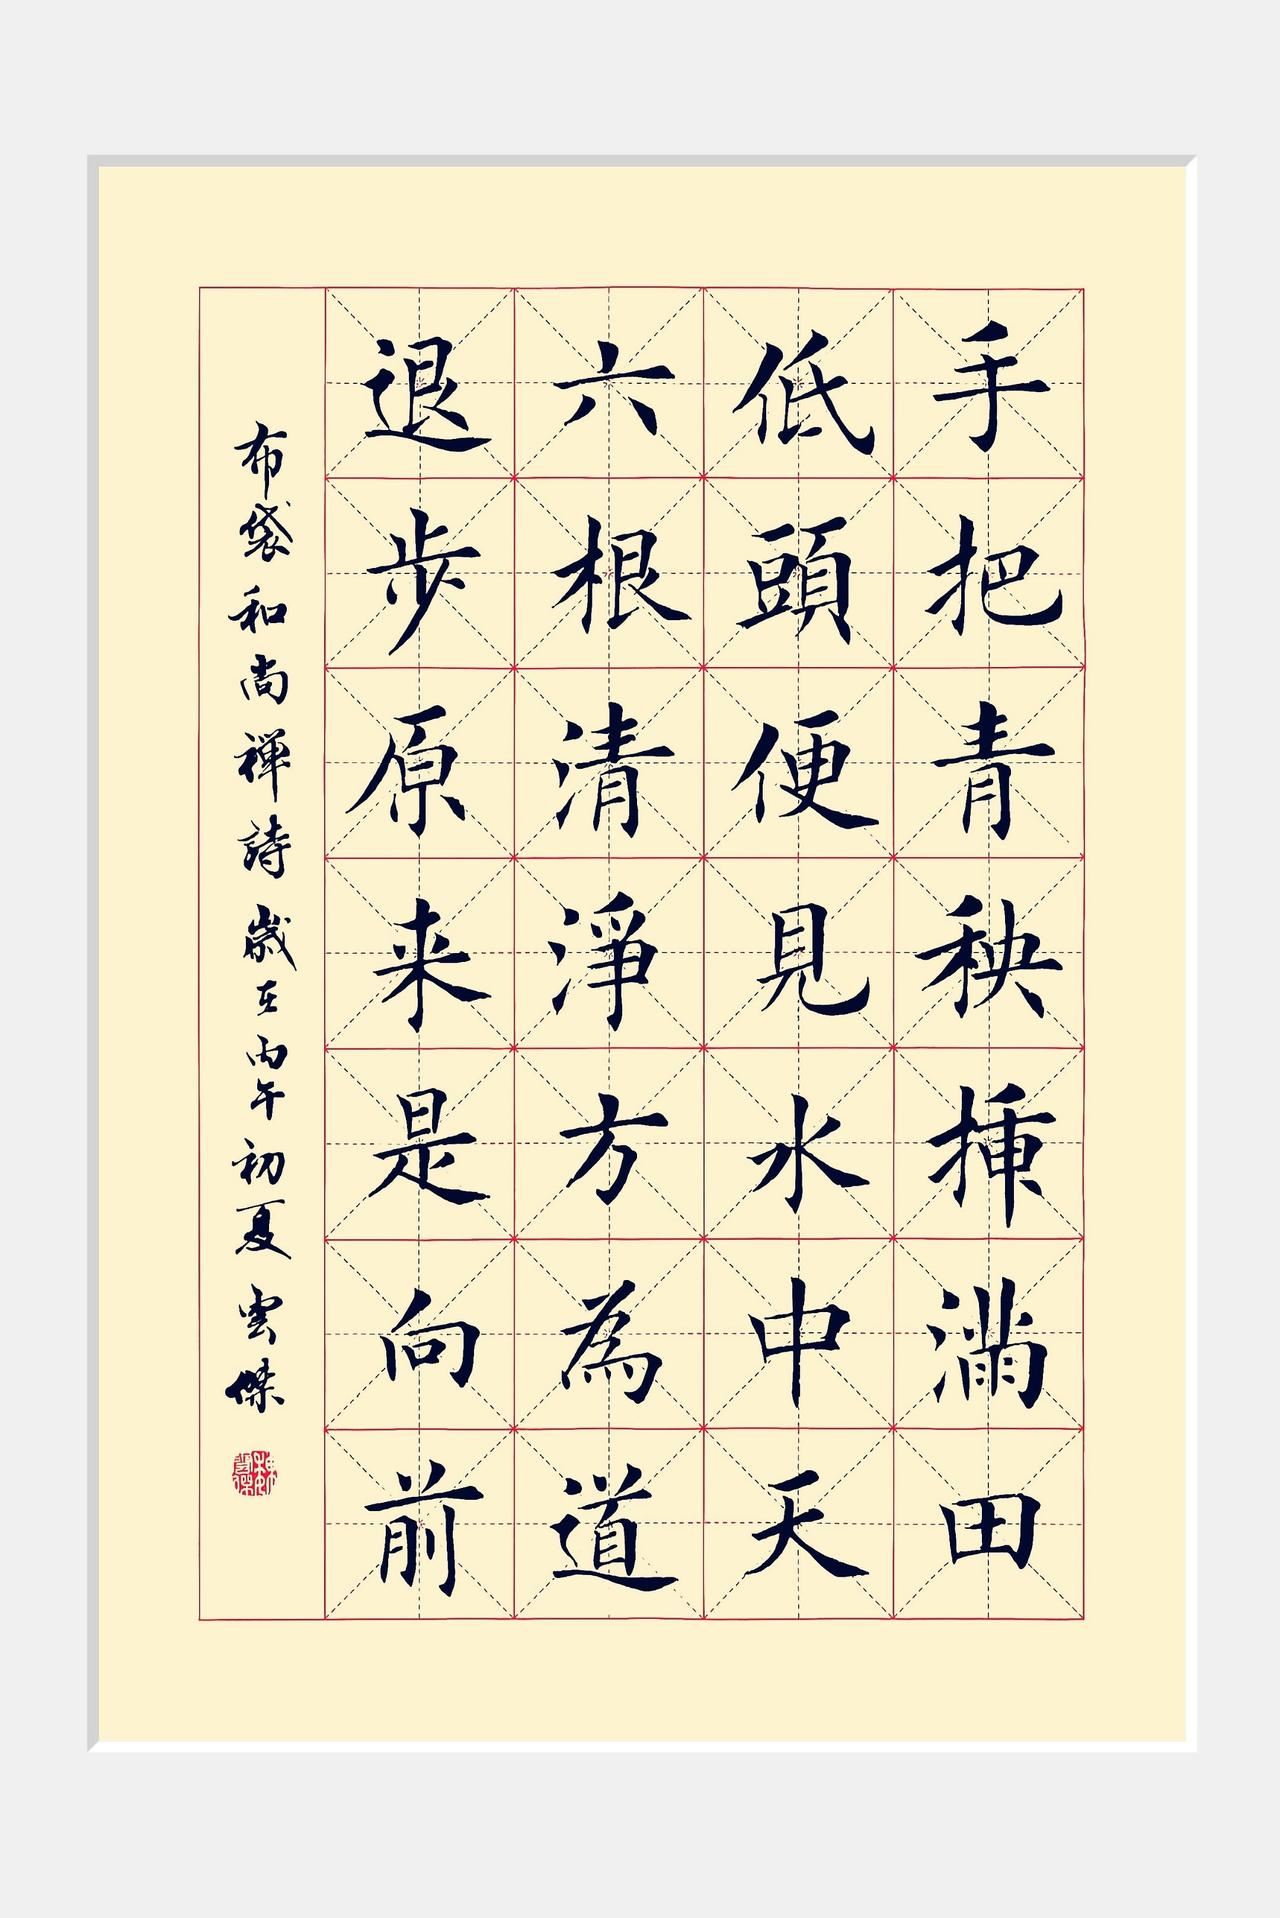 手把青秧插滿田
低頭便見水中天
六根清淨方為道
退步原来是向前
布袋和尚禅詩 歲在丙午初夏 雲傑